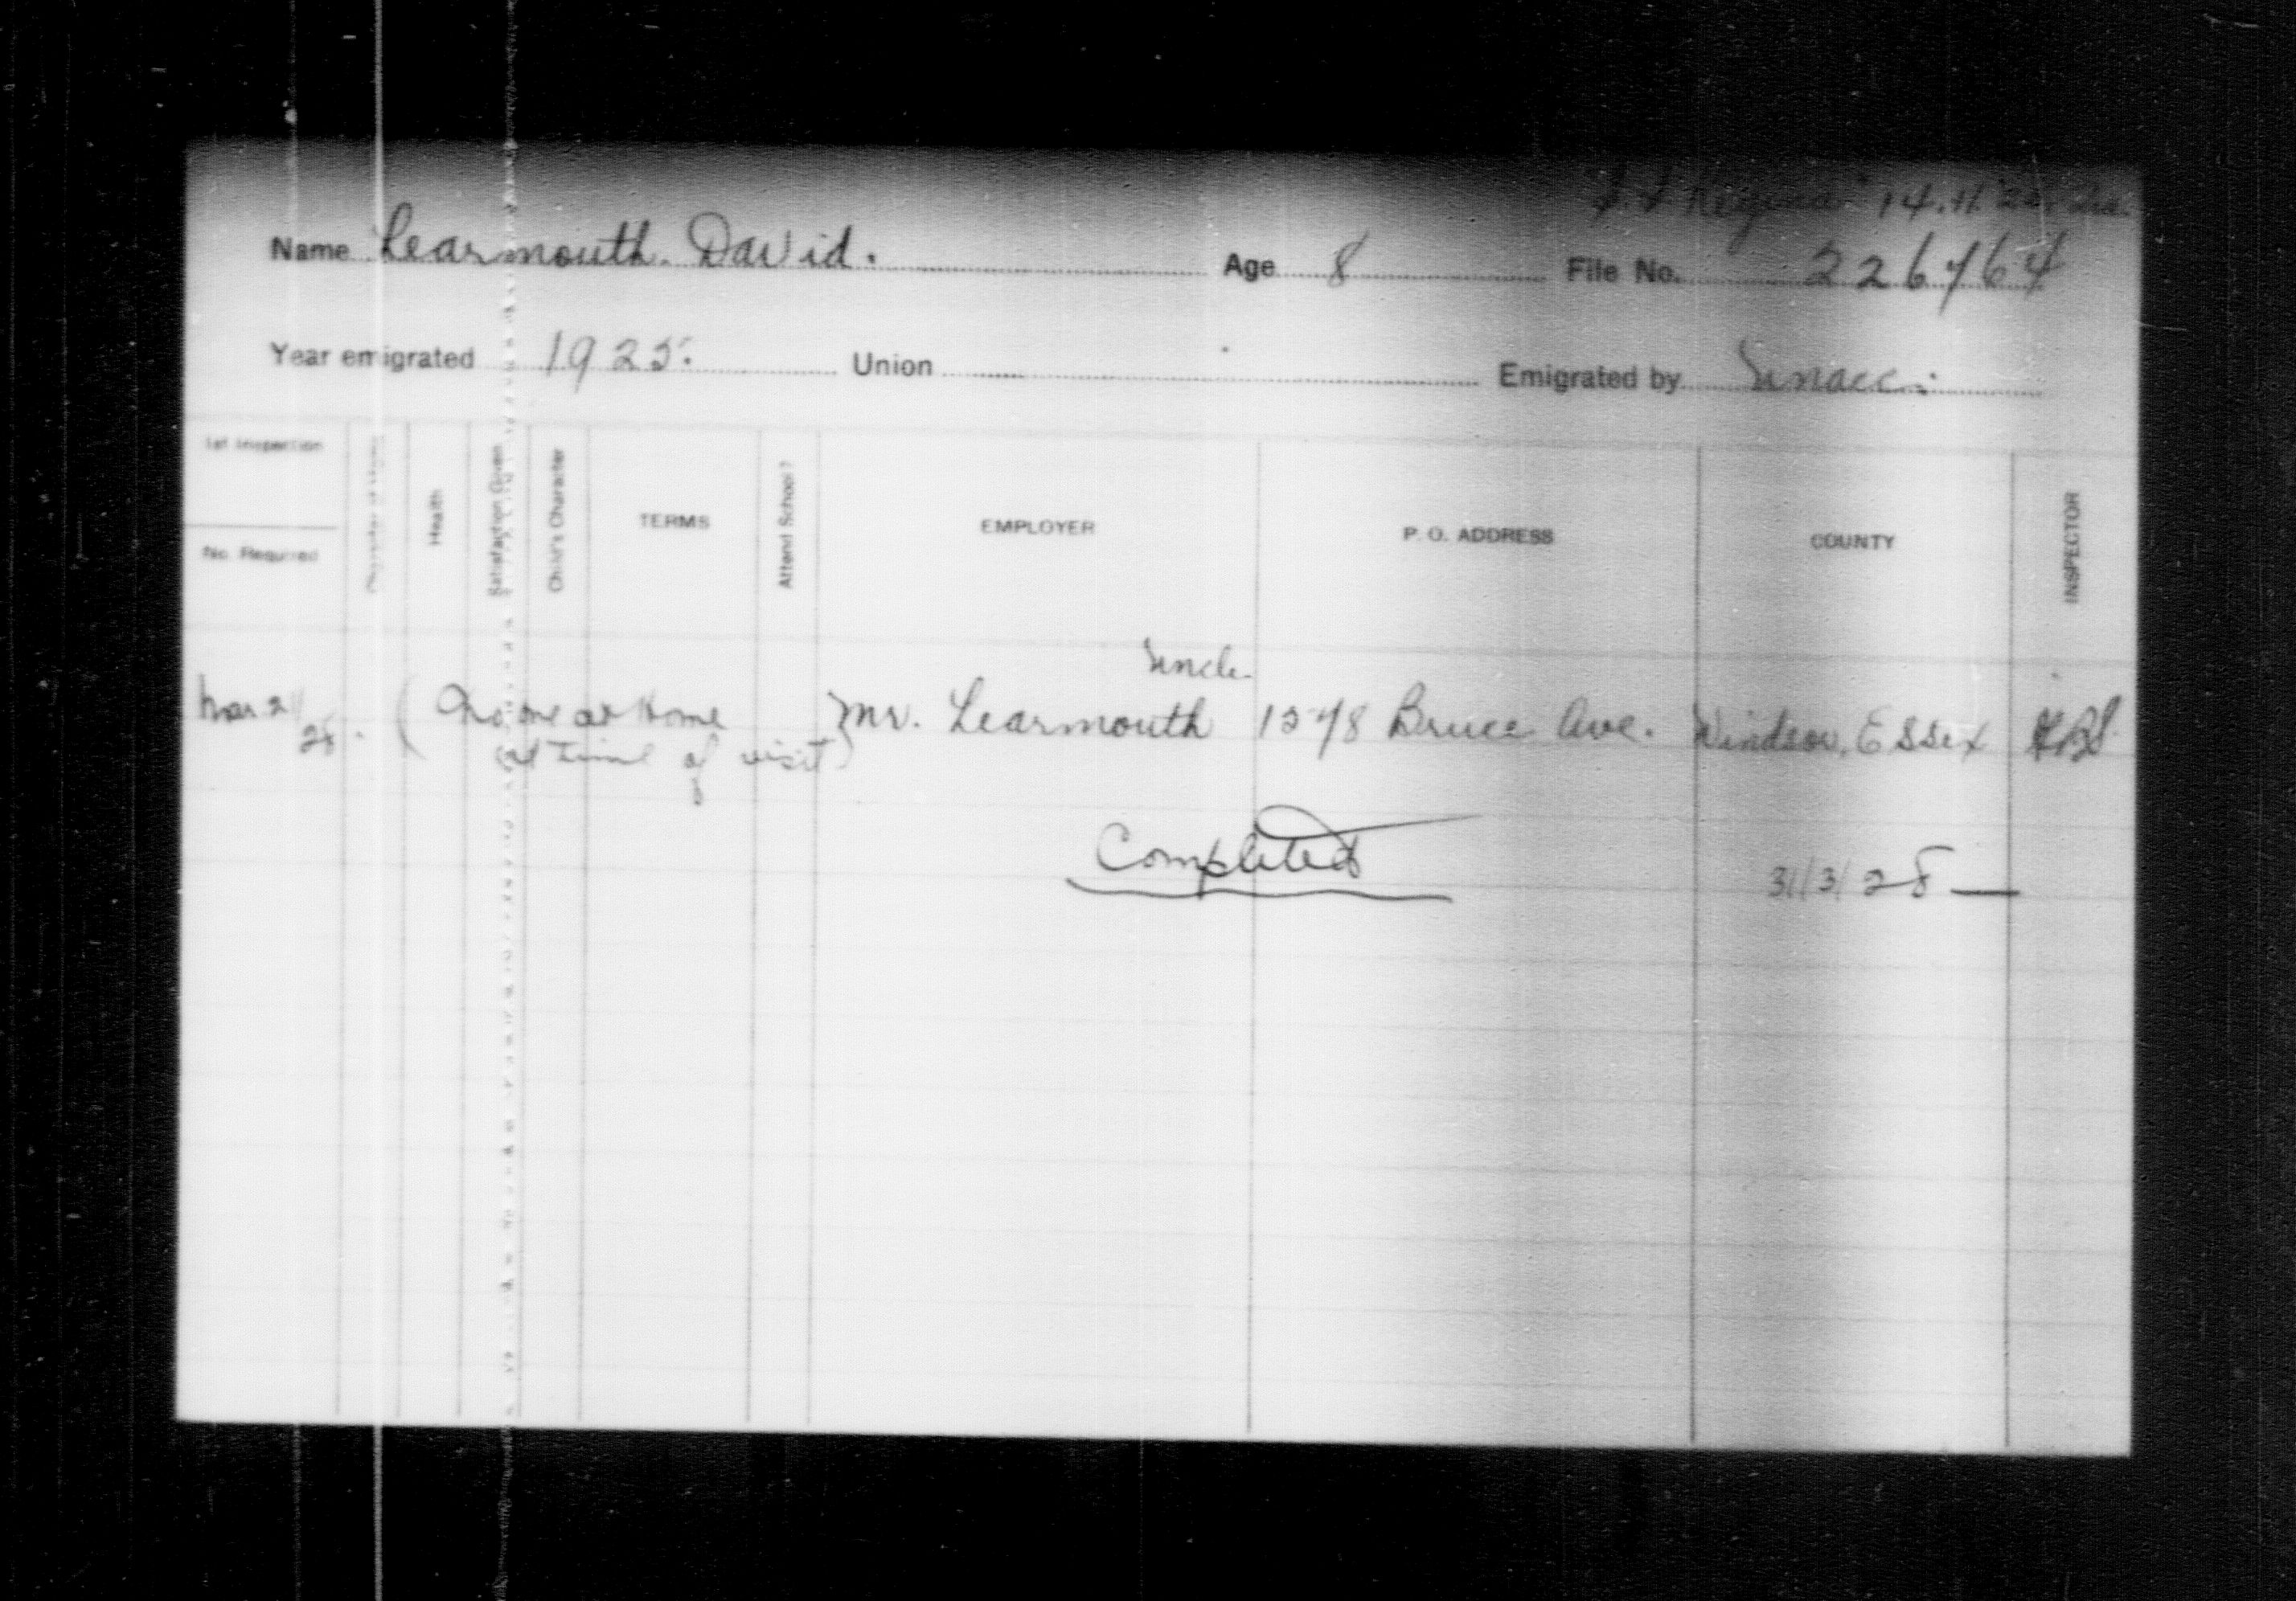 S.S Regina 14.11.25.
Name Learmouth. David. Age 8 File No. 226764
Year emigrated 1925. Union Emigrated by Unacc.
1st Inspection
No. Required
Character of Home
Health
Satisfaction Given
Child's Character
TERMS
Attend School?
EMPLOYER
P. O. ADDRESS
COUNTY
INSPECTOR
Uncle.
Mar 21 (No one at Home Mr. Learmouth 1578 Bruce Ave. Windsor, Essex
28. at time of visit)
Completed 31/3/28